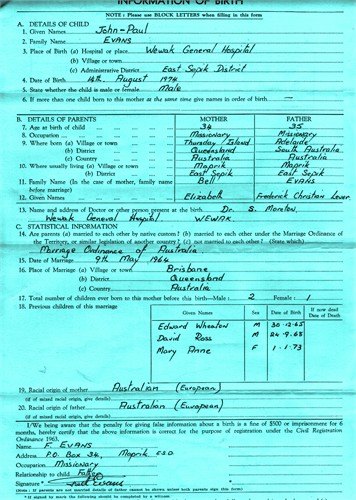 INFORMATION OF BIRTH
NOTE: Please use BLOCK LETTERS when filling in this form
A. DETAILS OF CHILD
1. Given Names John-Paul
2. Family Name EVANS
3. Place of Birth (a) Hospital or place. Wewak General Hospital
(b) Village or town
(c) Administrative District East Sepik District
4. Date of Birth 14th. August 1974
5. State whether the child is male or female. Male
6. If more than one child born to this mother at the same time give names in order of birth —
B. DETAILS OF PARENTS MOTHER FATHER
7. Age at birth of child 34 35
8. Occupation Missionary Missionary
9. Where born (a) Village or town Thursday Island. Adelaide
(b) District Queensland South Australia
(c) Country Australia Australia
10. Where usually living (a) Village or town Maprik Maprik
(b) District East Sepik East Sepik
11. Family Name (In the case of mother, family name before marriage) Bell EVANS
12. Given Names Elizabeth Frederick Christian Lever
13. Name and address of Doctor or other person present at the birth. Dr. S. Moreton,
Wewak General Hospital. WEWAK.
C. STATISTICAL INFORMATION
14. Are parents (a) married to each other by native custom? (b) married to each other under the Marriage Ordinance of
the Territory, or similar legislation of another country? (c) not married to each other? (State which)
Marriage Ordinance of Australia
15. Date of Marriage 9th May 1964
16. Place of Marriage (a) Village or town Brisbane
(b) District Queensland
(c) Country Australia
17. Total number of children ever born to this mother before this birth—Male: 2 Female: 1
18. Previous children of this marriage
Given Names Sex Date of Birth If now dead Date of Death
Edward M 30-12-65
David Ross M 24-9-68
Mary Anne F 1-1-73
19. Racial origin of mother Australian (European)
(if of mixed racial origin, give details)
20. Racial origin of father Australian (European)
(if of mixed racial origin, give details)
I/We being aware that the penalty for giving false information about a birth is a fine of $500 or imprisonment for 6
months, hereby certify that the above information is correct for the purpose of registration under the Civil Registration
Ordinance 1963.
Name F. EVANS
Address P.O. Box 34, Maprik E.S.D
Occupation Missionary
Relationship to child Father
Signature * Evans
(Note: If parents are not married details of father cannot be shown unless both parents sign this form)
*If signed to mark the should be completed by a witness.